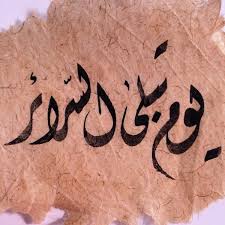 يوم تبلى السرّائر